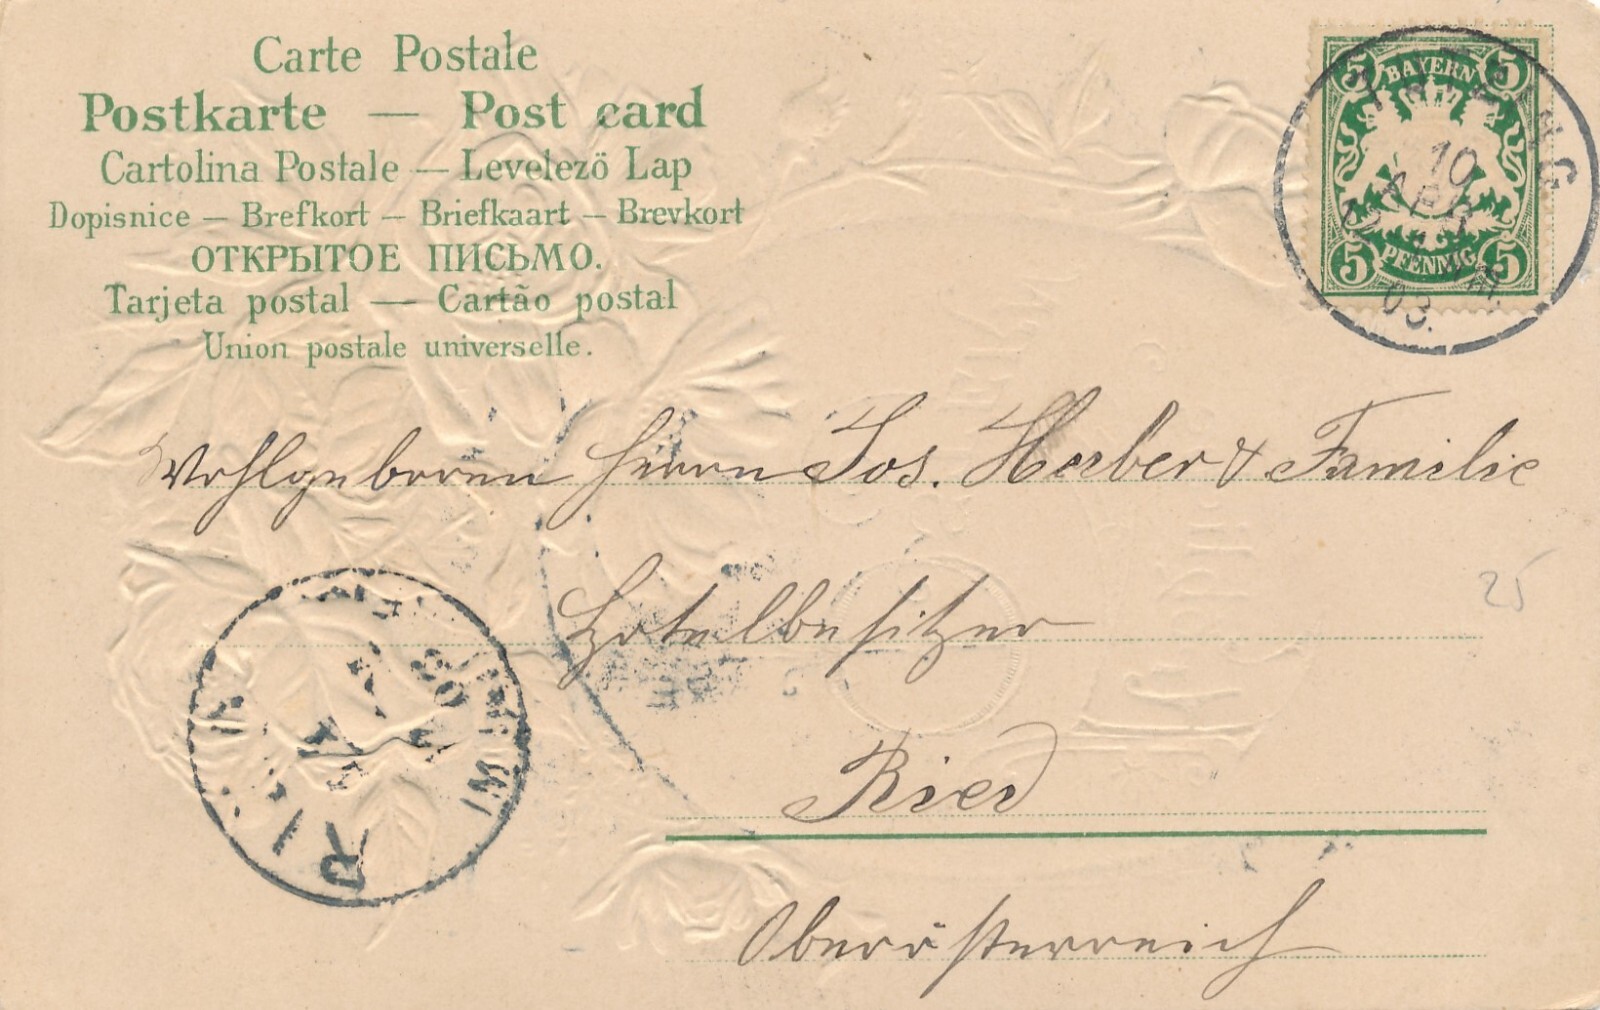 Carte Postale
Postkarte — Post card
Cartolina Postale — Levelező Lap
Dopisnice — Brefkort — Briefkaart — Brevkort
ОТКРЫТОЕ ПИСЬМО.
Tarjeta postal — Cartão postal
Union postale universelle.
5 BAYERN 5
10
APR
03.
5 PFENNIG 5
Wohlgeboren Herrn Jos. Herber & Familie
25
Hotelbesitzer
Ried
Oberösterreich